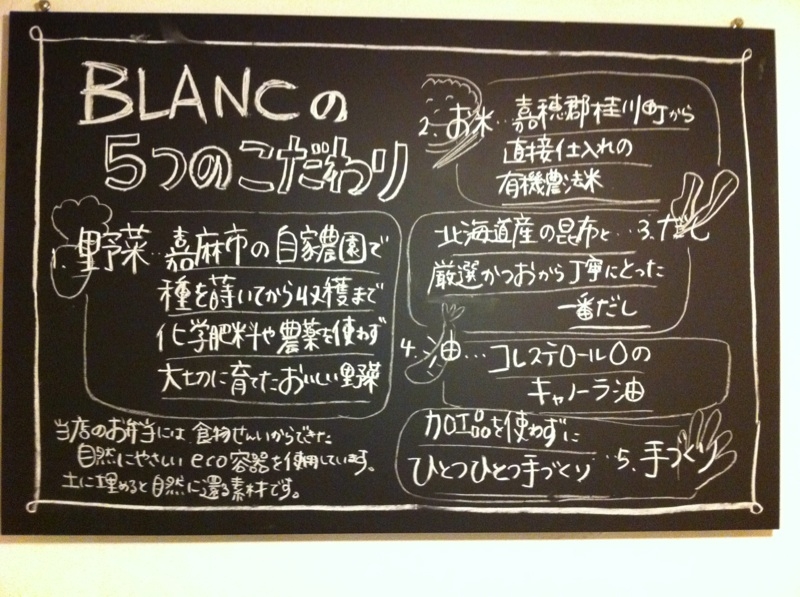 BLANCの
5つのこだわり
1. 野菜…嘉麻市の自家農園で
種を蒔いてから収穫まで
化学肥料や農薬を使わず
大切に育てたおいしい野菜
2. お米…嘉穂郡桂川町から
直接仕入れの
有機農法米
北海道産の昆布と…3. だし
厳選かつおから丁寧にとった
一番だし
4. 油…コレステロール0の
キャノーラ油
加工品を使わずに
ひとつひとつ手づくり…5. 手づくり
当店のお弁当には食物せんいからできた
自然にやさしいeco容器を使用しています。
土に埋めると自然に還る素材です。